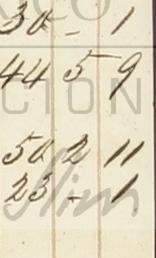 30 - 1
44 5 9
50 2 11
23 - 1